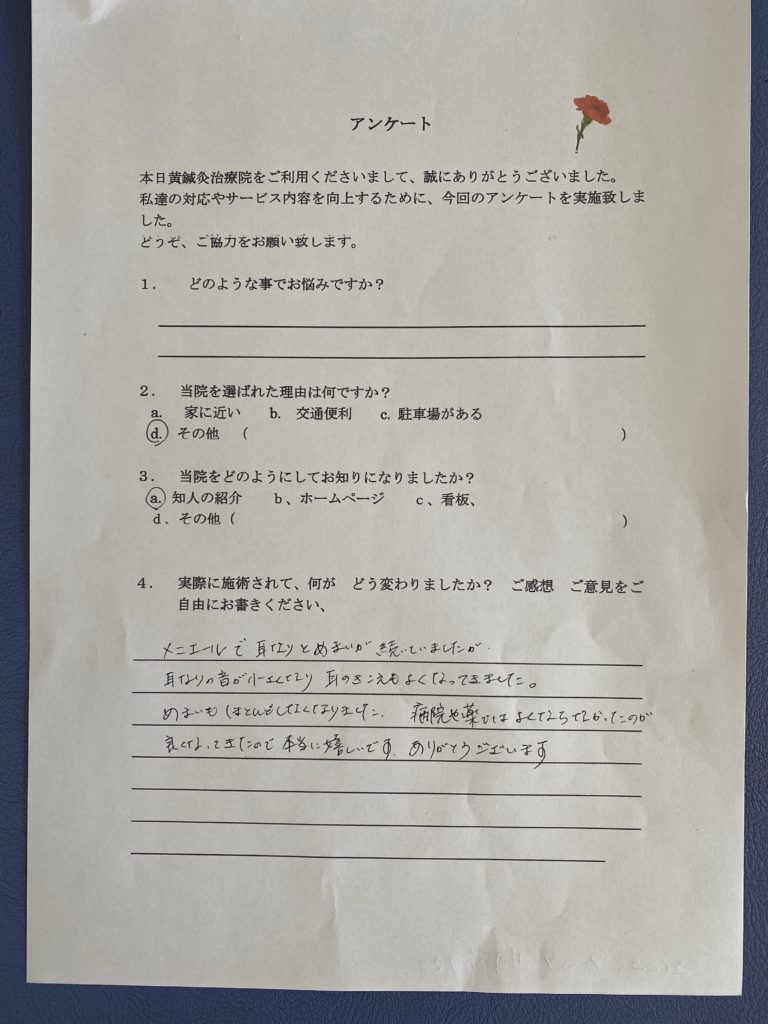 アンケート
本日黄鍼灸治療院をご利用くださいまして、誠にありがとうございました。
私達の対応やサービス内容を向上するために、今回のアンケートを実施致しま
した。
どうぞ、ご協力をお願い致します。
1. どのような事でお悩みですか?
2. 当院を選ばれた理由は何ですか?
a. 家に近い b. 交通便利 c. 駐車場がある
d. その他 ( )
3. 当院をどのようにしてお知りになりましたか?
a. 知人の紹介 b、ホームページ c、看板、
d、その他( )
4. 実際に施術されて、何が どう変わりましたか? ご感想 ご意見をご
自由にお書きください、
メニエールで耳なりとめまいが続いていましたが
耳なりの音が小さくなり 耳のきこえもよくなってきました。
めまいもほとんどしなくなりました. 病院や薬ではよくならなかったのが
良くなってきたので本当に嬉しいです. ありがとうございます